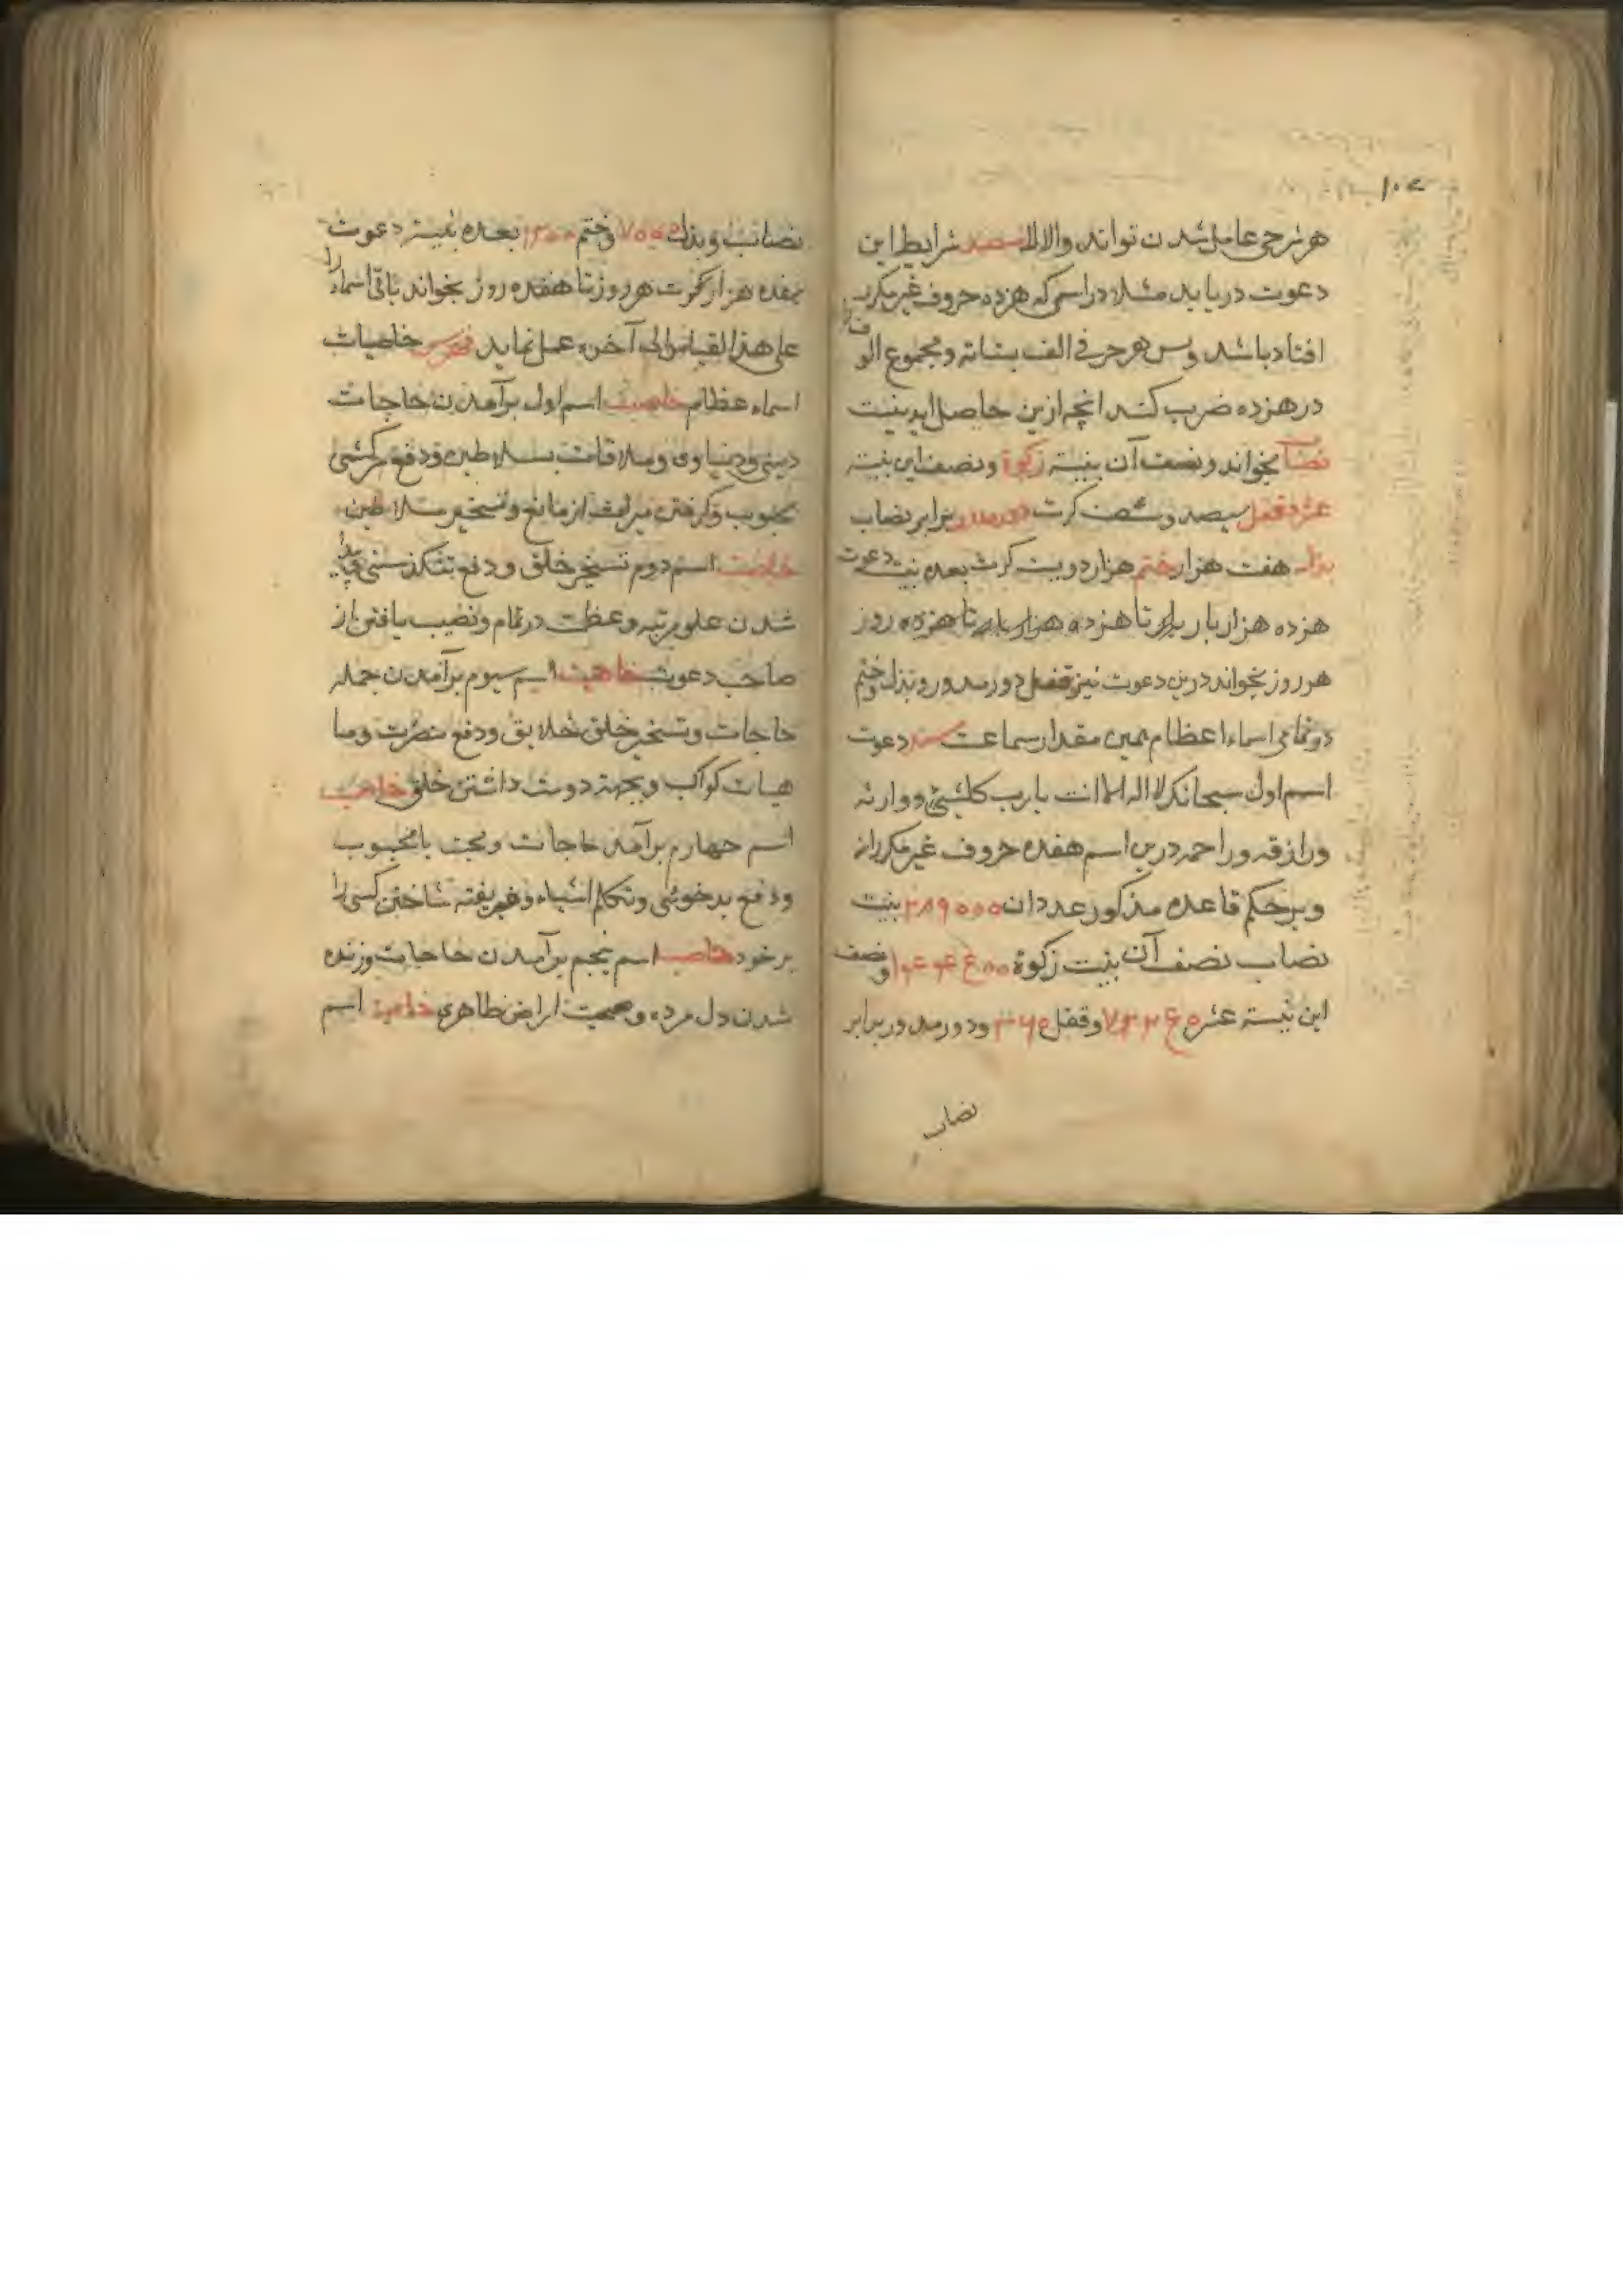 هر شرحی عامل شدن تواند والا لا شرایط این
دعوت دریابد مثلا در اسمی که هزده حروف غیر مکرر
افتاد باشد وبس هر حرفی الف بستانه ومجموع الوف را
در هزده ضرب کند انچه ازین حاصل اید بنیت
نصاب بخواند ونصف آن بنیته زکوة ونصف این بنیته
عشر وقفل سیصد وشصت کرت دور مدور برابر نصاب
بذل هفت هزار ختم هزار دویست کرت بعده بنیت دعوت
هزده هزار بار تا هزده هزار تا هزده روز
هر روز بخواند درین دعوت نیز قفل دور مدور وبذل وختم
در تمامی اسماء اعظام همین مقدار سماعت دعوت
اسم اول سبحانک لا اله الا انت یا رب کلشیئ ووارثه
ورازقه وراحمه درین اسم هفده حروف غیر مکرر اند
وبر حکم قاعده مذکور عدد ان ۲۸۹۰۰۰ بنیت
نصاب نصف آن بنیت زکوة ونصف
این نیته عشر وقفل ۳۶۰ ودور مدور برابر
نصاب
نصاب وبذل ۷۰۰۰ وختم ۱۲۰۰ بعده بنیته دعوت
هفده هزار کرت هر روز تا هفده روز بخواند باقی اسماء را
علی هذا القیاس الی آخره عمل نماید فهرس خاصیات
اسماء عظام خاصیت اسم اول برآمدن حاجات
دینی ودنیاوی وملاقات بسلاطین ودفع سرکشی
محبوب وگرفتن میراث از مانع وتسخیر سلاطین
خاصیت اسم دوم تسخیر خلق ودفع تنکدستی پیدا
شدن علو مرتبه وعظمت در تمام ونصیب یافتن از
صاحب دعوت خاصیت اسم سیوم برآمدن جمله
حاجات وتسخیر خلق خلایق ودفع مضرت وما
هیات کواکب وبجهة دوست داشتن خلق خاصیت
اسم چهارم برآمدن حاجات ومحبت با محبوب
ودفع بدخوئی وتکلم اشیاء وفریفته ساختن کسی را
بر خود خاصیت اسم پنجم برآمدن حاجات وزنده
شدن دل مرده وصحت امراض ظاهری خاصیت اسم